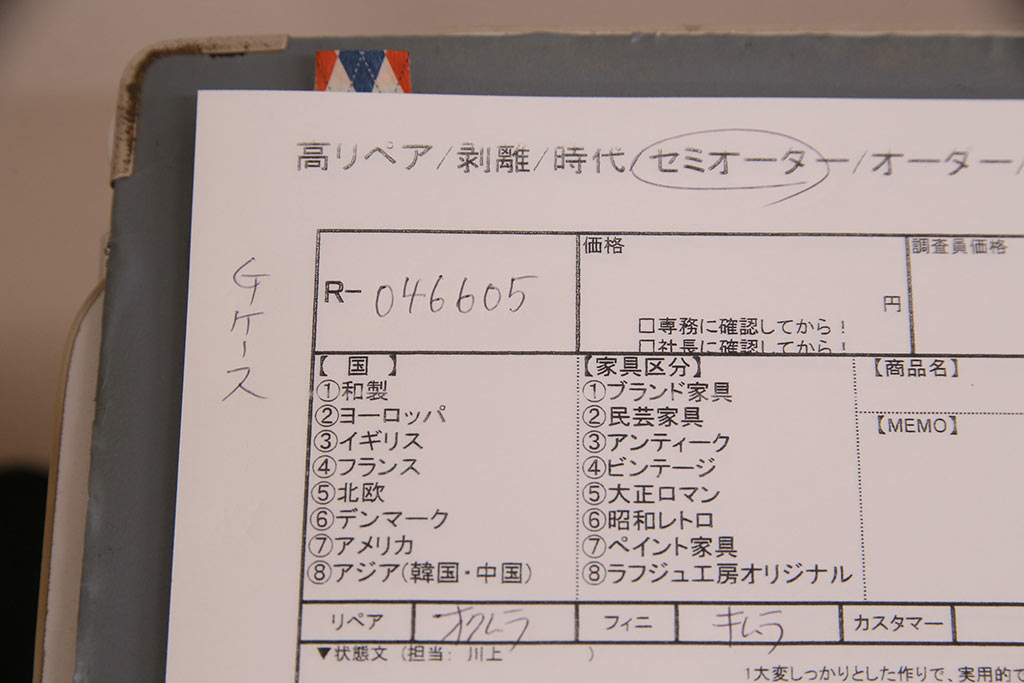 高リペア/剥離/時代/セミオーター/オーター/
Gケース
R-046605
価格
円
□専務に確認してから！
□社長に確認してから！
調査員価格
【 国 】
①和製
②ヨーロッパ
③イギリス
④フランス
⑤北欧
⑥デンマーク
⑦アメリカ
⑧アジア(韓国・中国)
【家具区分】
①ブランド家具
②民芸家具
③アンティーク
④ビンテージ
⑤大正ロマン
⑥昭和レトロ
⑦ペイント家具
⑧ラフジュ工房オリジナル
【商品名】
【MEMO】
リペア オクムラ フィニ キムラ カスタマー
▼状態文 (担当: 川上 )
1大変しっかりとした作りで、実用的で